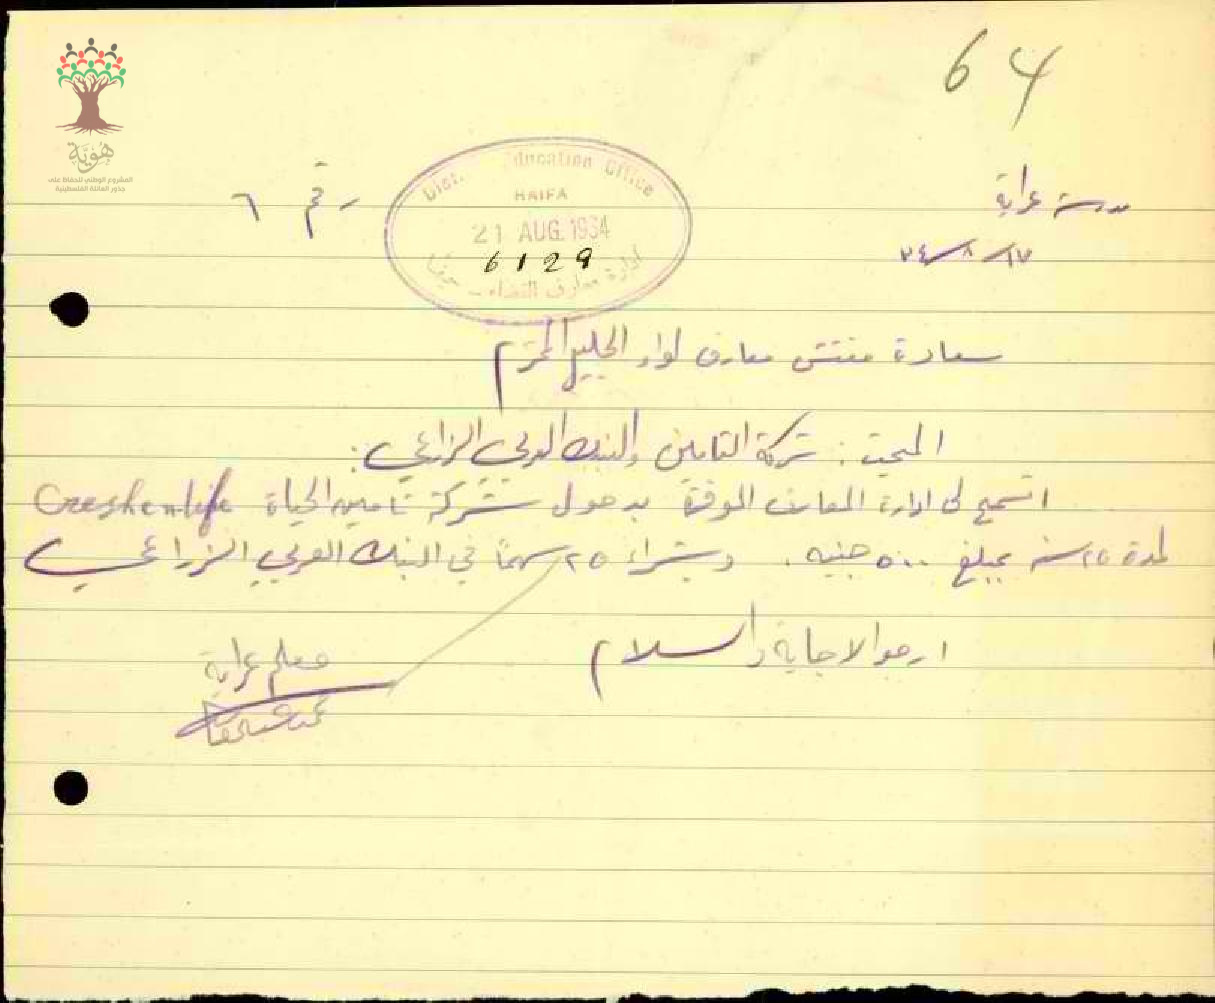 64
هوية
المشروع الوطني للحفاظ على
جذور العائلة الفلسطينية
مدرسة عرابة
رقم ٦
١٧/٨/٣٤
Dist. Education Office
HAIFA
21 AUG. 1934
6129
ادارة معارف القضاء - حيفا
سعادة مفتش معارف لواء الجليل المحترم
المبحث : شركة التامين والبنك العربي الزراعي :
اتسمح لي ادارة المعارف الموقرة بدخول شركة تامين الحياة life
لمدة ٢٥ سنة بمبلغ ٥٠٠ جنيه . وبشراء ٢٥ سهمًا في البنك العربي الزراعي
ارجو الاجابة والسلام
معلم عرابة